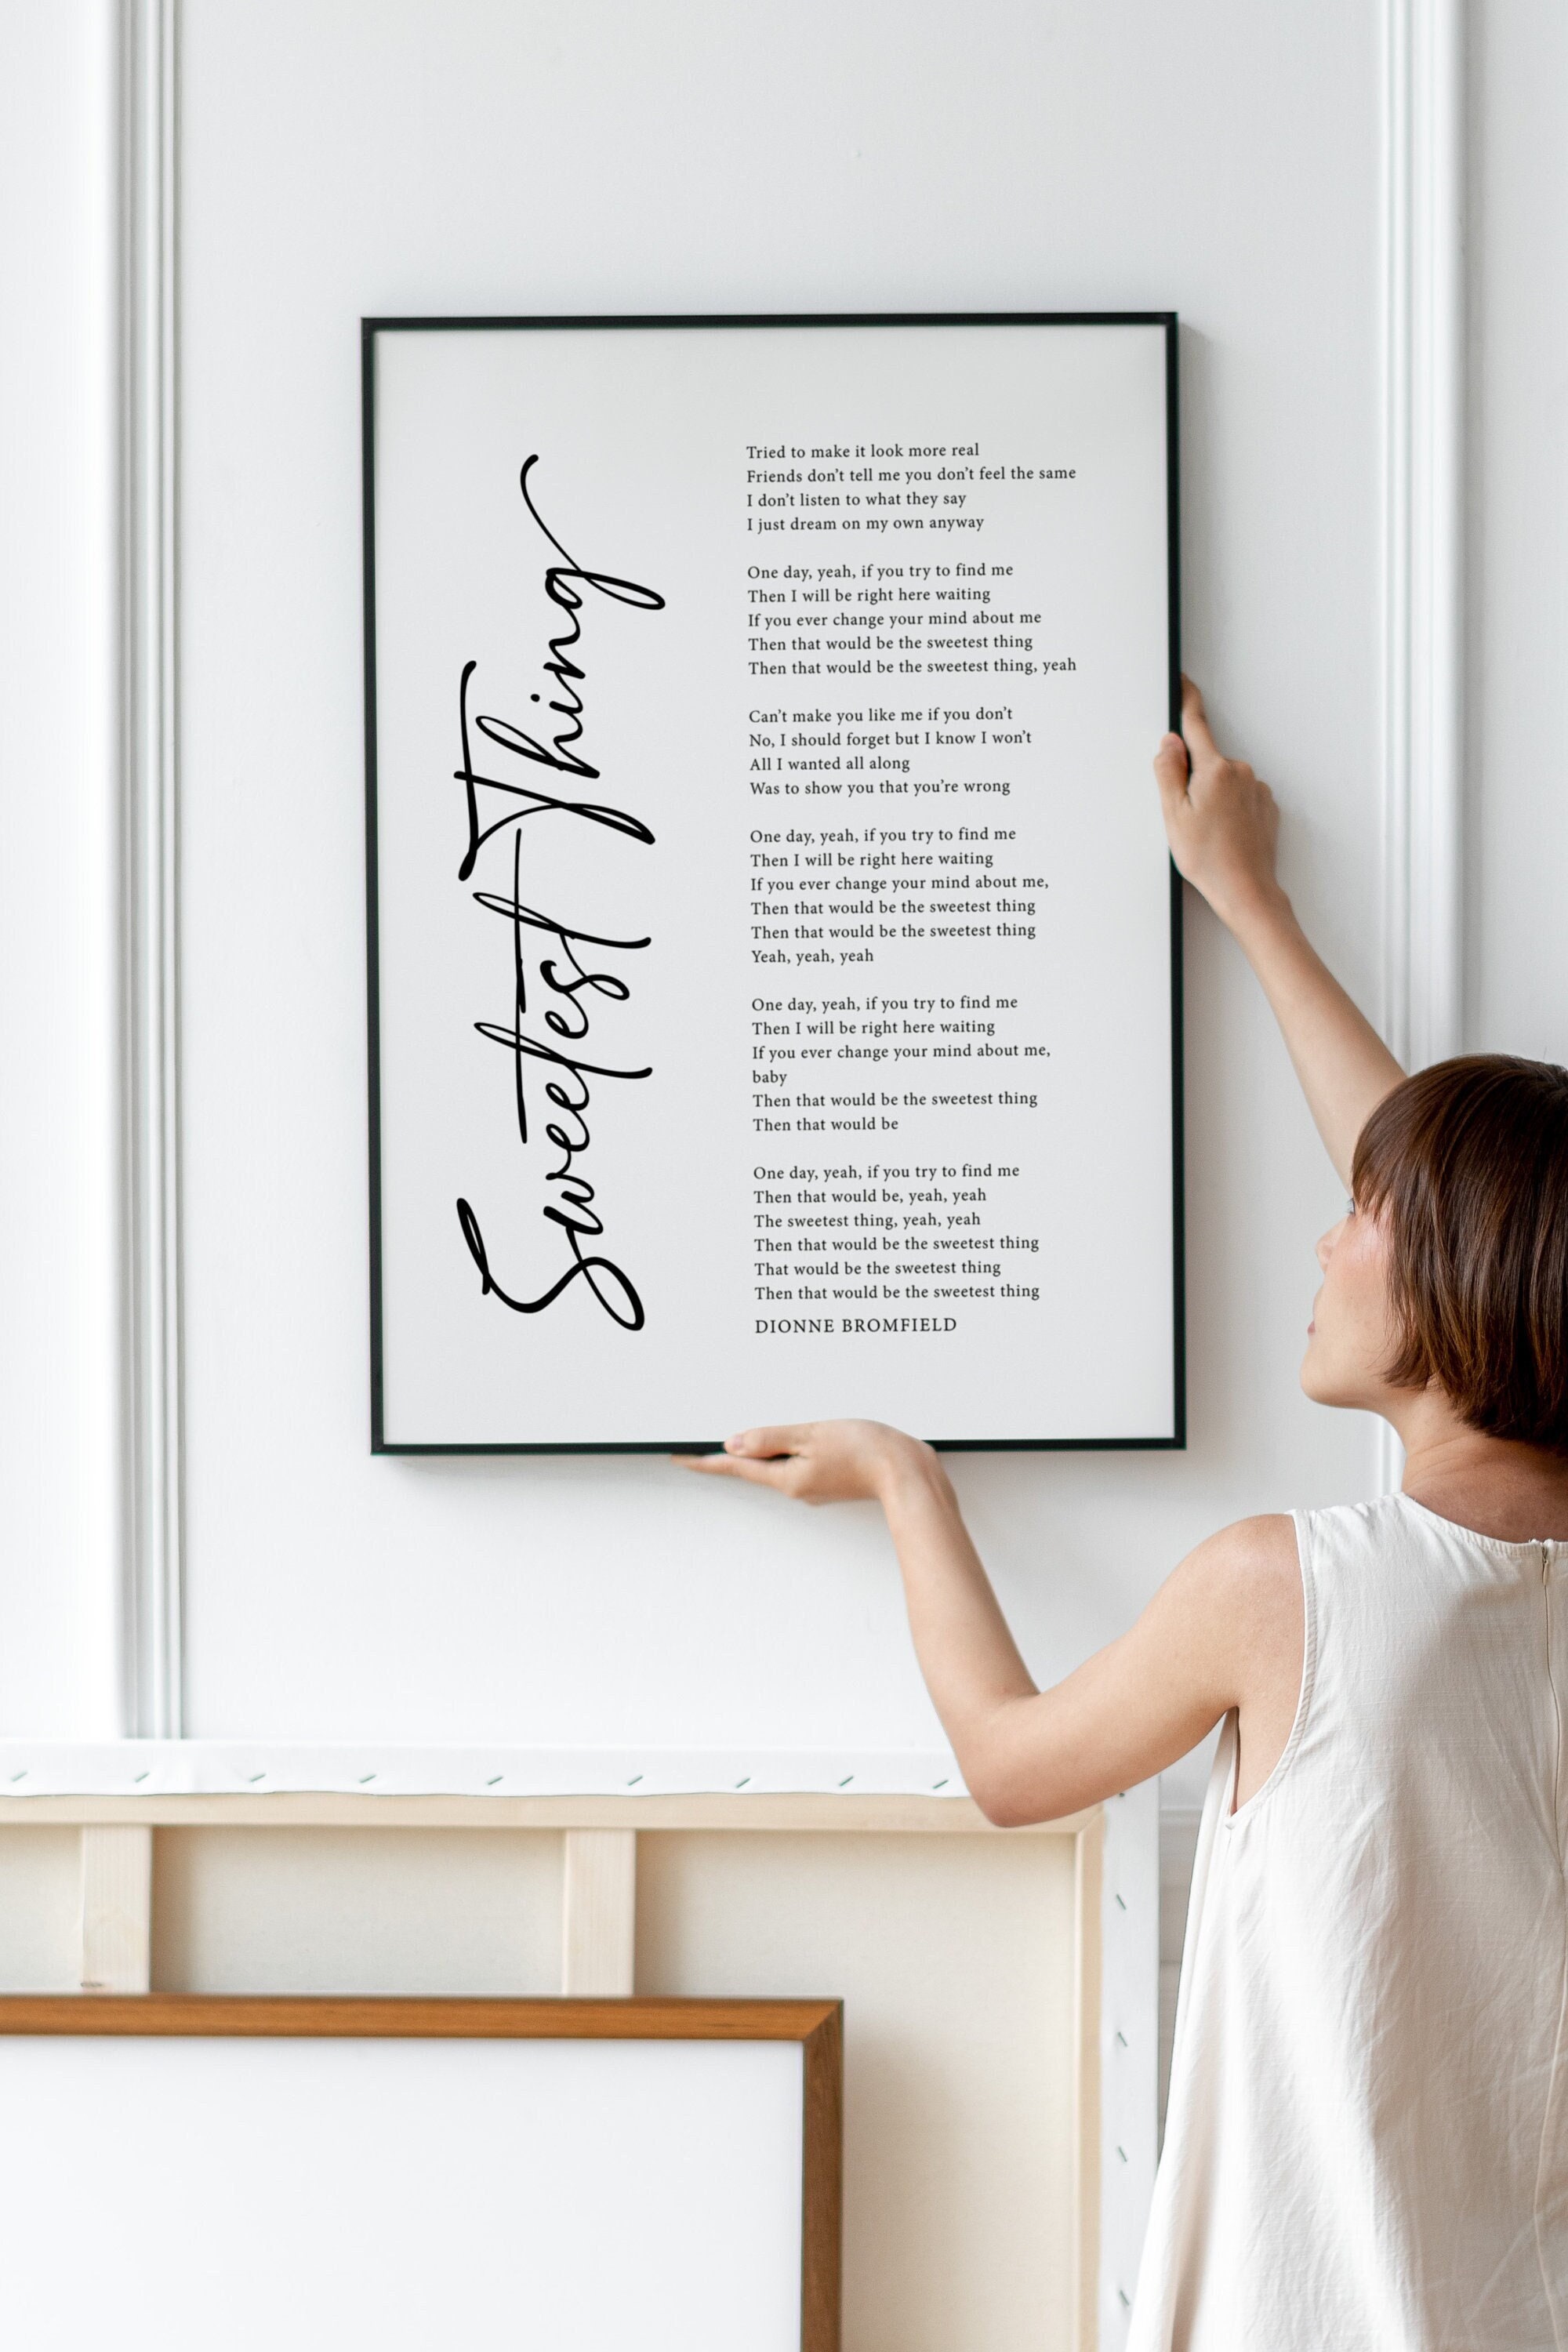 Sweetest Thing
Tried to make it look more real
Friends don't tell me you don't feel the same
I don't listen to what they say
I just dream on my own anyway
One day, yeah, if you try to find me
Then I will be right here waiting
If you ever change your mind about me
Then that would be the sweetest thing
Then that would be the sweetest thing, yeah
Can't make you like me if you don't
No, I should forget but I know I won't
All I wanted all along
Was to show you that you're wrong
One day, yeah, if you try to find me
Then I will be right here waiting
If you ever change your mind about me,
Then that would be the sweetest thing
Then that would be the sweetest thing
Yeah, yeah, yeah
One day, yeah, if you try to find me
Then I will be right here waiting
If you ever change your mind about me,
baby
Then that would be the sweetest thing
Then that would be
One day, yeah, if you try to find me
Then that would be, yeah, yeah
The sweetest thing, yeah, yeah
Then that would be the sweetest thing
That would be the sweetest thing
Then that would be the sweetest thing
DIONNE BROMFIELD